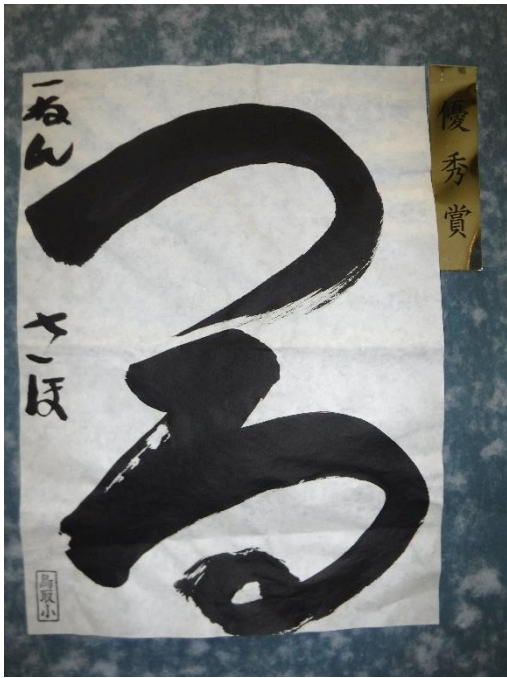 優秀賞
つる
一ねん
さほ
鳥取小